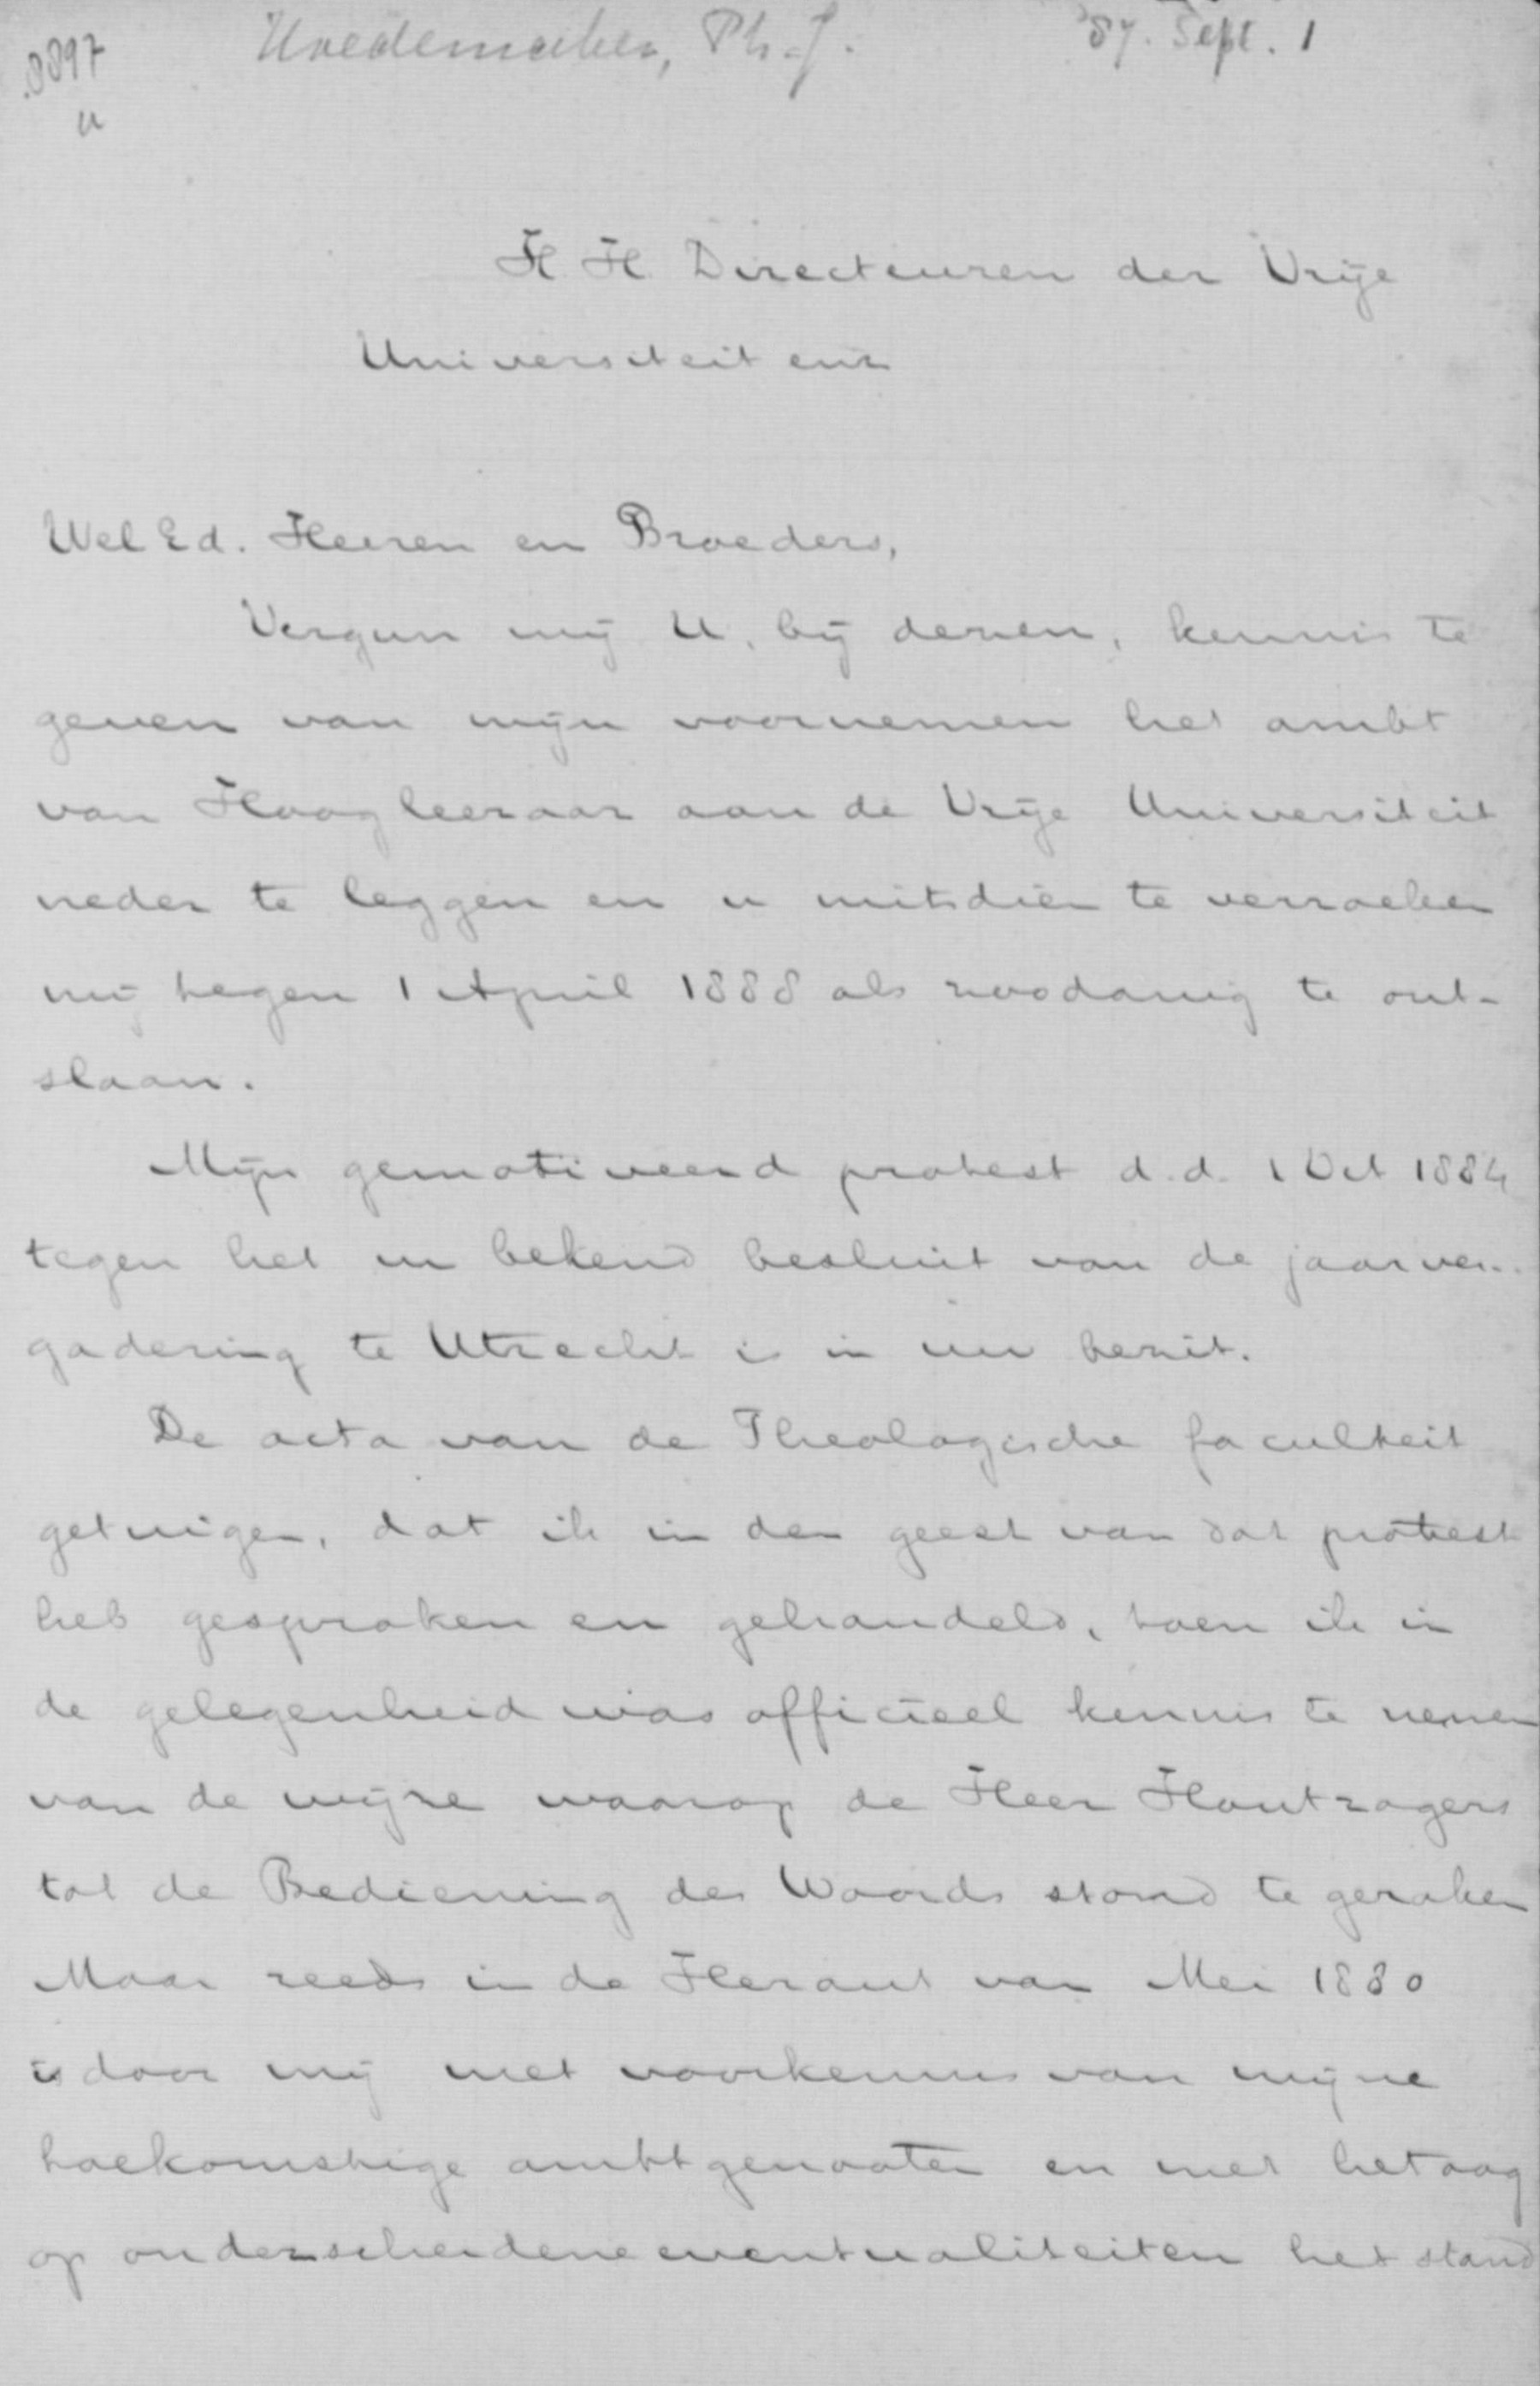 Hoedemaker, Ph. J. '87. Sept. 1
8897
u
H. H. Directeuren der Vrije
Universiteit enz
Wel Ed. Heeren en Broeders,
Vergun mij U, bij dezen, kennis te
geven van mijn voornemen het ambt
van Hoogleeraar aan de Vrije Universiteit
neder te leggen en u mitsdien te verzoeken
mij tegen 1 April 1888 als zoodanig te ont-
slaan.
Mijn gemotiveerd protest d.d. 1 Oct 1884
tegen het u bekend besluit van de jaarver-
gadering te Utrecht is in uw bezit.
De acta van de Theologische faculteit
getuigen, dat ik in den geest van dat protest
heb gesproken en gehandeld, toen ik in
de gelegenheid was officieel kennis te nemen
van de wijze waarop de Heer Houtzagers
tot de Bediening des Woords stond te geraken
Maar reeds in de Heraut van Mei 1880
is door mij met voorkennis van mijne
toekomstige ambtgenooten en met het oog
op onderscheidene eventualiteiten het stand